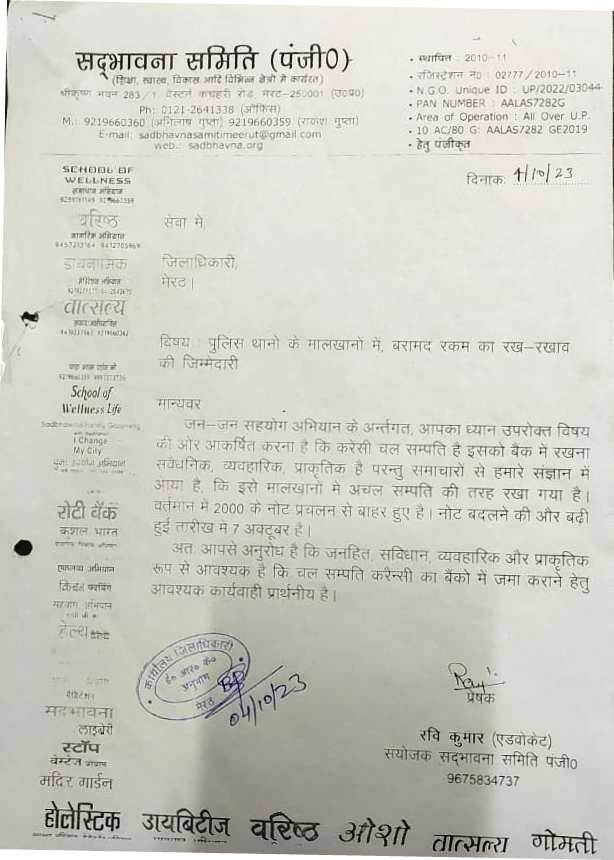 सद्भावना समिति (पंजी0)
(शिक्षा, स्वास्थ, विकास आदि विभिन्न क्षेत्रो मे कार्यरत)
श्रीकृष्ण भवन 283 / 1 वेस्टर्न कचहरी रोड, मेरठ-250001 (उ0प्र0)
Ph: 0121-2641338 (ऑफिस)
M.: 9219660360 (अभिलाष गुप्ता) 9219660359 (राकेश गुप्ता)
E-mail: sadbhavnasamitimeerut@gmail.com
web.: sadbhavna.org
• स्थापित : 2010-11
• रजिस्ट्रेशन न0 : 02777 / 2010-11
• N.G.O. Unique ID : UP/2022/03044
• PAN NUMBER : AALAS7282G
• Area of Operation : All Over U.P.
• 10 AC/80 G: AALAS/282 GE2019
• हेतु पंजीकृत
दिनाक: 4/10/23
SCHOOL OF
WELLNESS
समाधान अभियान
वरिष्ठ
नागरिक अभियान
वात्सल्य
School of
Wellness Life
I Change
My City
रोटी बैंक
कुशल भारत
हेल्थ
सद्भावना
लाइब्रेरी
स्टॉप
वेस्टेज
मंदिर गार्डन
सेवा मे,
जिलाधिकारी,
मेरठ।
विषय : पुलिस थानो के मालखानो मे, बरामद रकम का रख-रखाव
की जिम्मेदारी
मान्यवर
जन-जन सहयोग अभियान के अर्न्तगत, आपका ध्यान उपरोक्त विषय
की ओर आकर्षित करना है कि करेंसी चल सम्पति है इसको बैंक मे रखना
सवैधनिक, व्यवहारिक, प्राकृतिक है परन्तु समाचारो से हमारे संज्ञान मे
आया है, कि इसे मालखानो मे अचल सम्पति की तरह रखा गया है।
वर्तमान मे 2000 के नोट प्रचलन से बाहर हुए है। नोट बदलने की और बढ़ी
हुई तारीख मे 7 अक्टूबर है।
अत: आपसे अनुरोध है कि जनहित, सविधान, व्यवहारिक और प्राकृतिक
रूप से आवश्यक है कि चल सम्पति करैन्सी का बैंको मे जमा कराने हेतु
आवश्यक कार्यवाही प्रार्थनीय है।
कार्यालय जिलाधिकारी
ई० आर० के०
अनुभाग
मेरठ
04/10/23
प्रेषक
रवि कुमार (एडवोकेट)
सयोजक सद्भावना समिति पंजी0
9675834737
होलेस्टिक डायबिटीज वरिष्ठ ओशो तात्सल्य गोमती